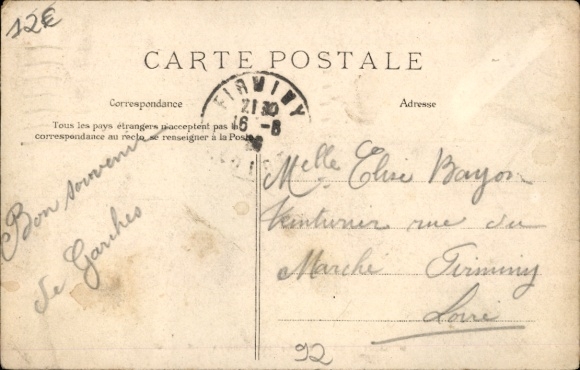 12€
CARTE POSTALE
Correspondance
Adresse
Tous les pays étrangers n'acceptent pas la
correspondance au recto, se renseigner à la Poste
FIRMINY
21 30
16 -8
Bon souvenir
de Garches
Melle Elise Bayon
rue du
Marché Firminy
Loire
92